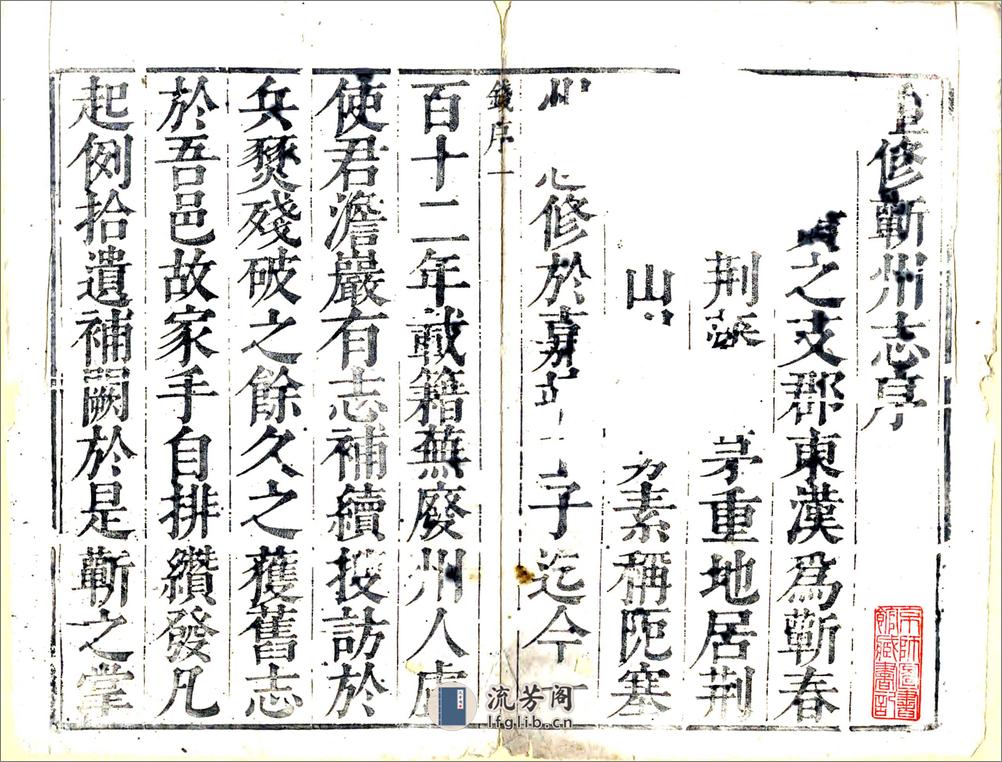 重修蘄州志序
之支郡東漢爲蘄春
荆 茅重地居荆
山 素稱阨塞
州志修於嘉 子迄今一
錢序一
百十二年載籍蕪廢州人盧
使君澹巖有志補續搜訪於
兵燹殘破之餘久之獲舊志
於吾邑故家手自排纘發凡
起例拾遺補闕於是蘄之掌
京師圖書館藏書記
流芳阁
lfglib.cn